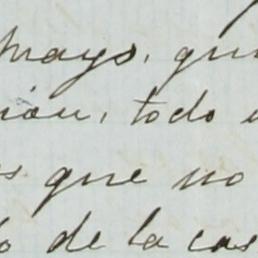 mayo, qui
ión, todo
s que no
o de la cas